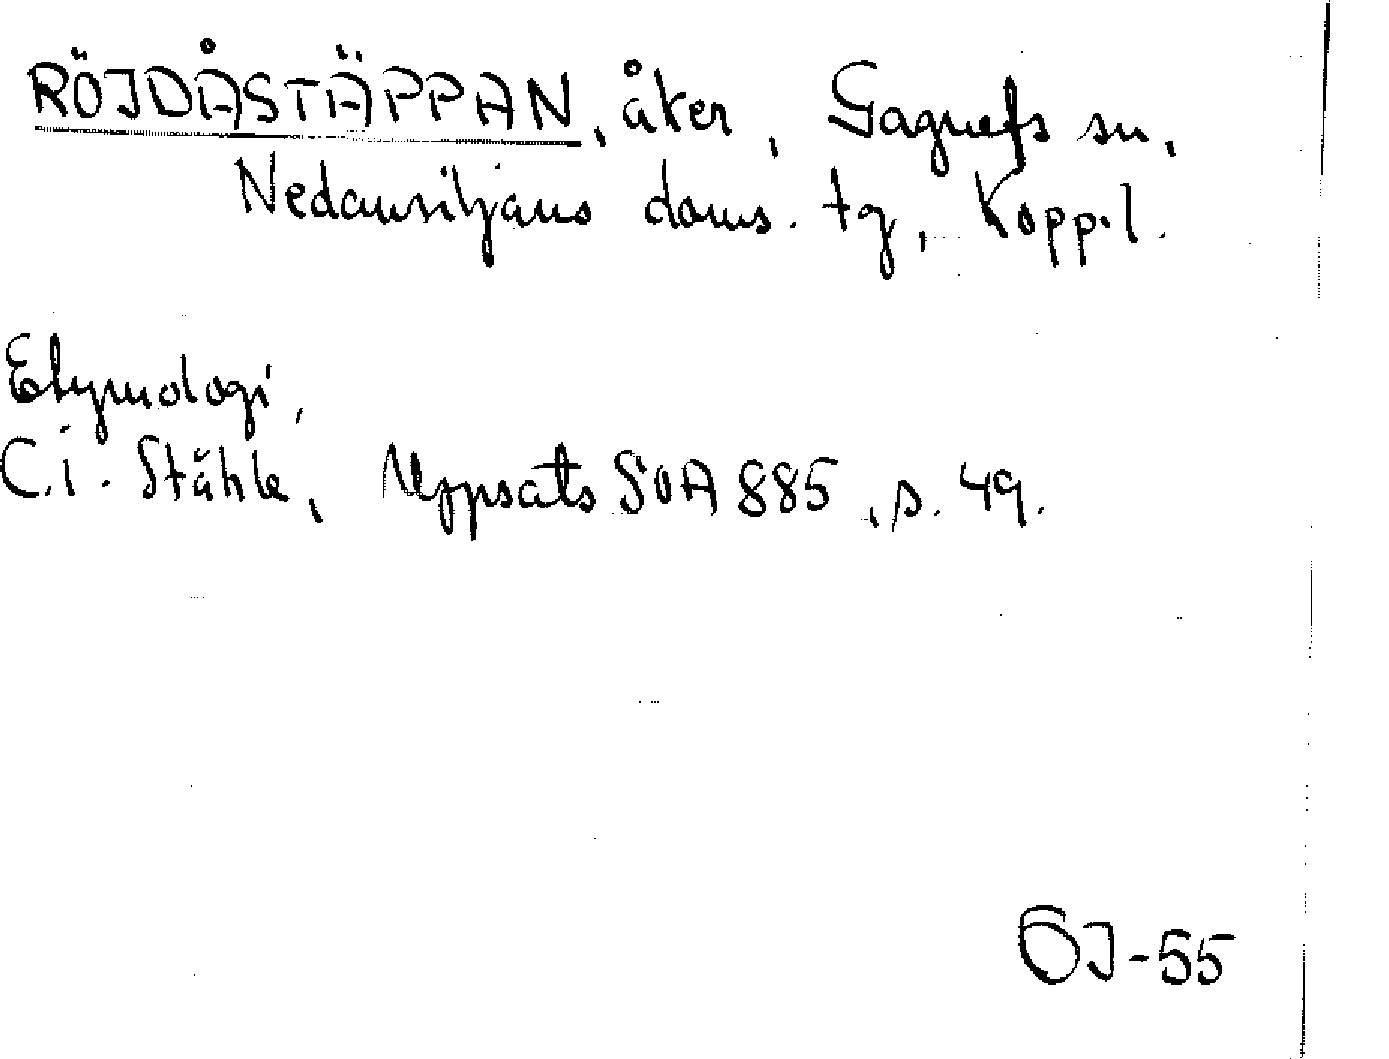 RÖJDÅSTÄPPAN, åker, Gagnefs sn,
Nedansiljans doms. tg, Kopp.l.
Etymologi,
C.I. Ståhle, Uppsats SOA 885, s. 49.
GJ-55